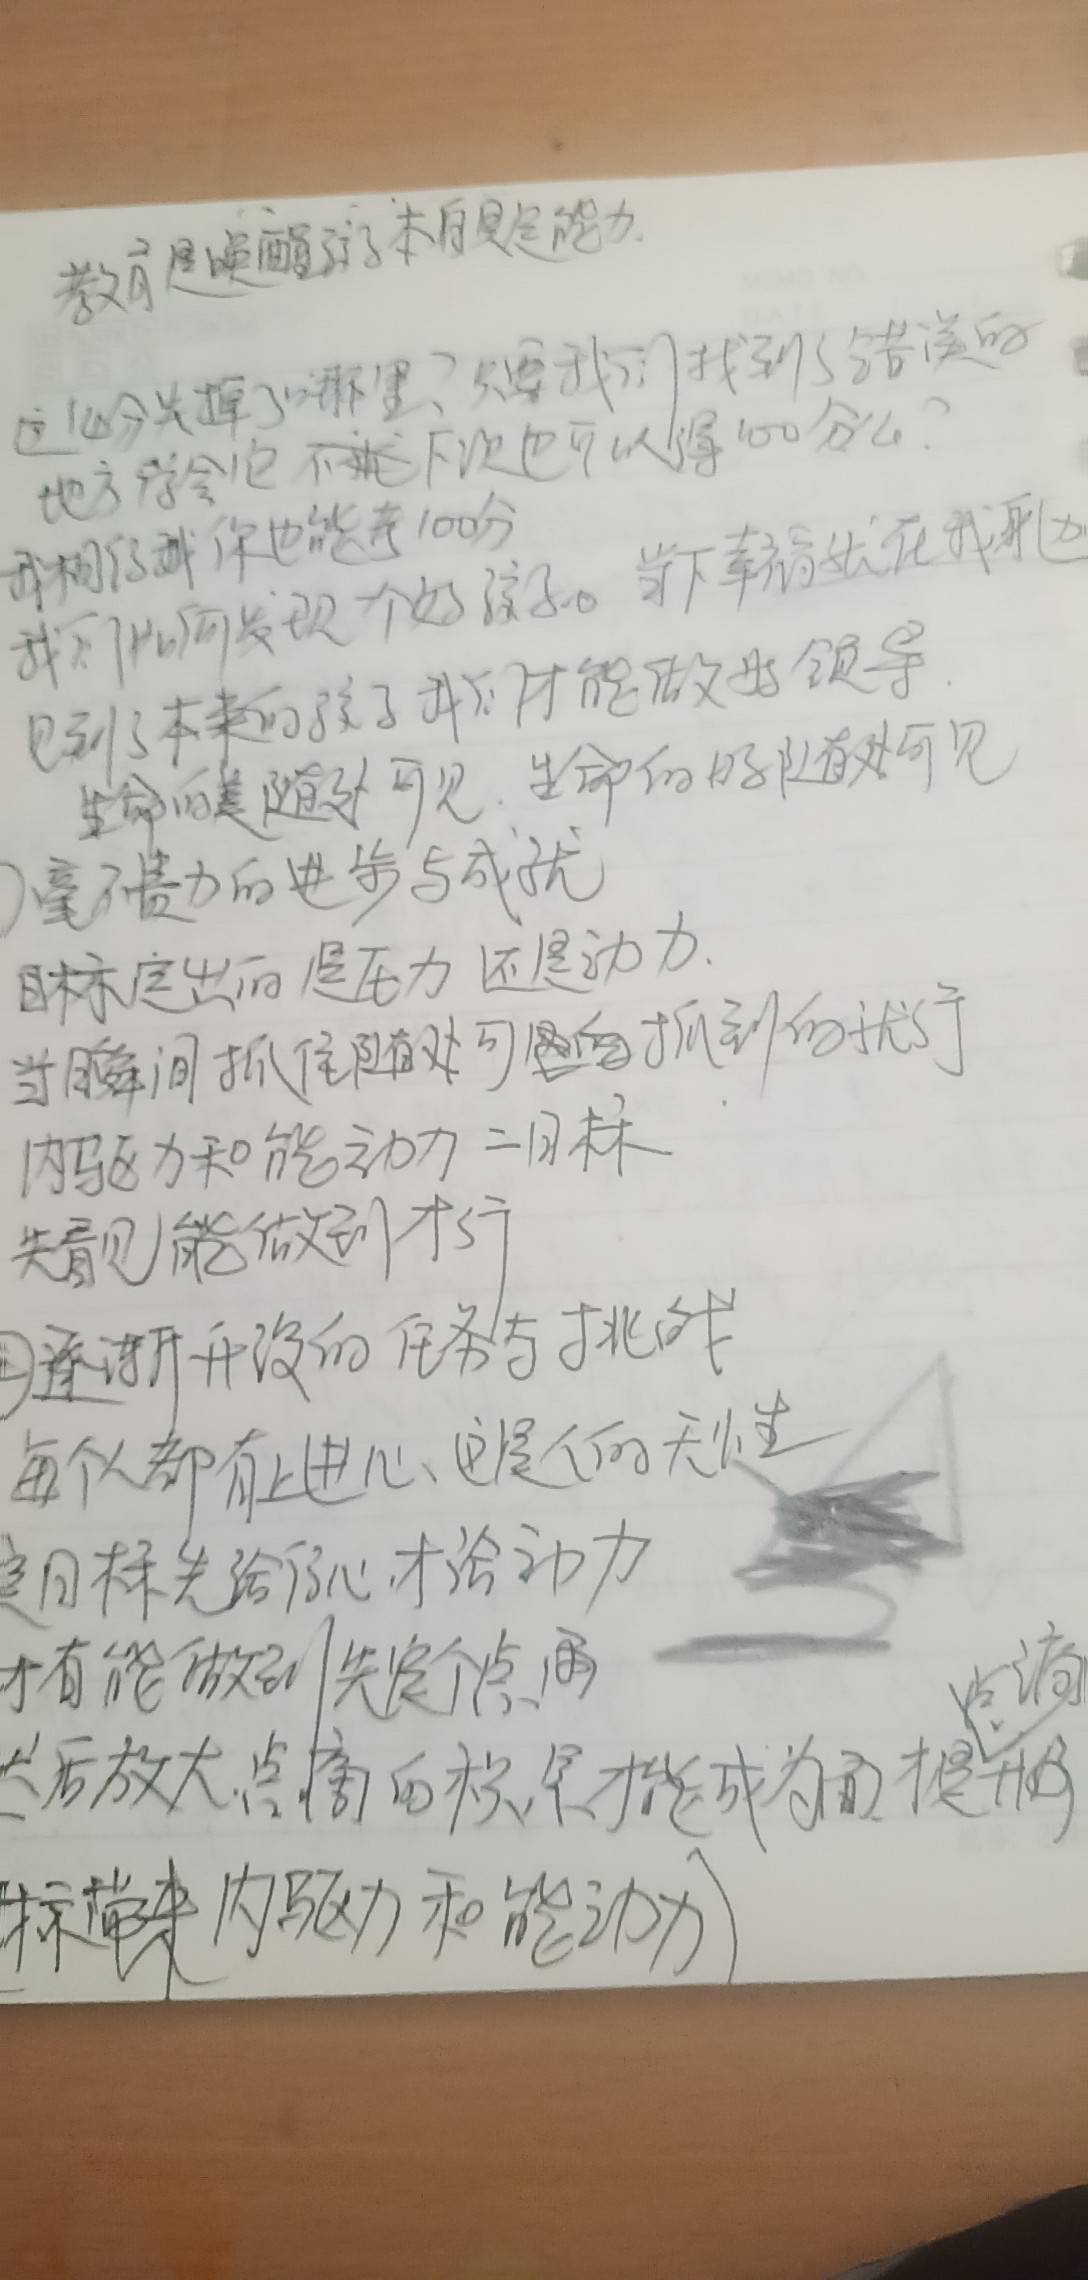 教育是唤醒孩子本自具足能力.
这10分失掉了哪里?只要我们找到了错误的
地方学会它 不就下次也可以得100分么?
我相信我你也能考100分
我们如何发现一个好孩子。当下幸福就在我身边
见到了本来的孩子我们才能做好领导.
生命的美随处可见.生命的好随处可见
毫不费力的进步与成就
目标定出的是压力还是动力.
当瞬间抓住随处可 抓到的优行
内驱力和能动力=目标
先看见能做到才行
逐渐升级的任务与挑战
每个人都有上进心、这是人的天性
定目标先给信心.才给动力
才有能做到先定个点,再
然后放大.点滴的积累才能成为面.才提升
点滴
标带来内驱力和能动力)